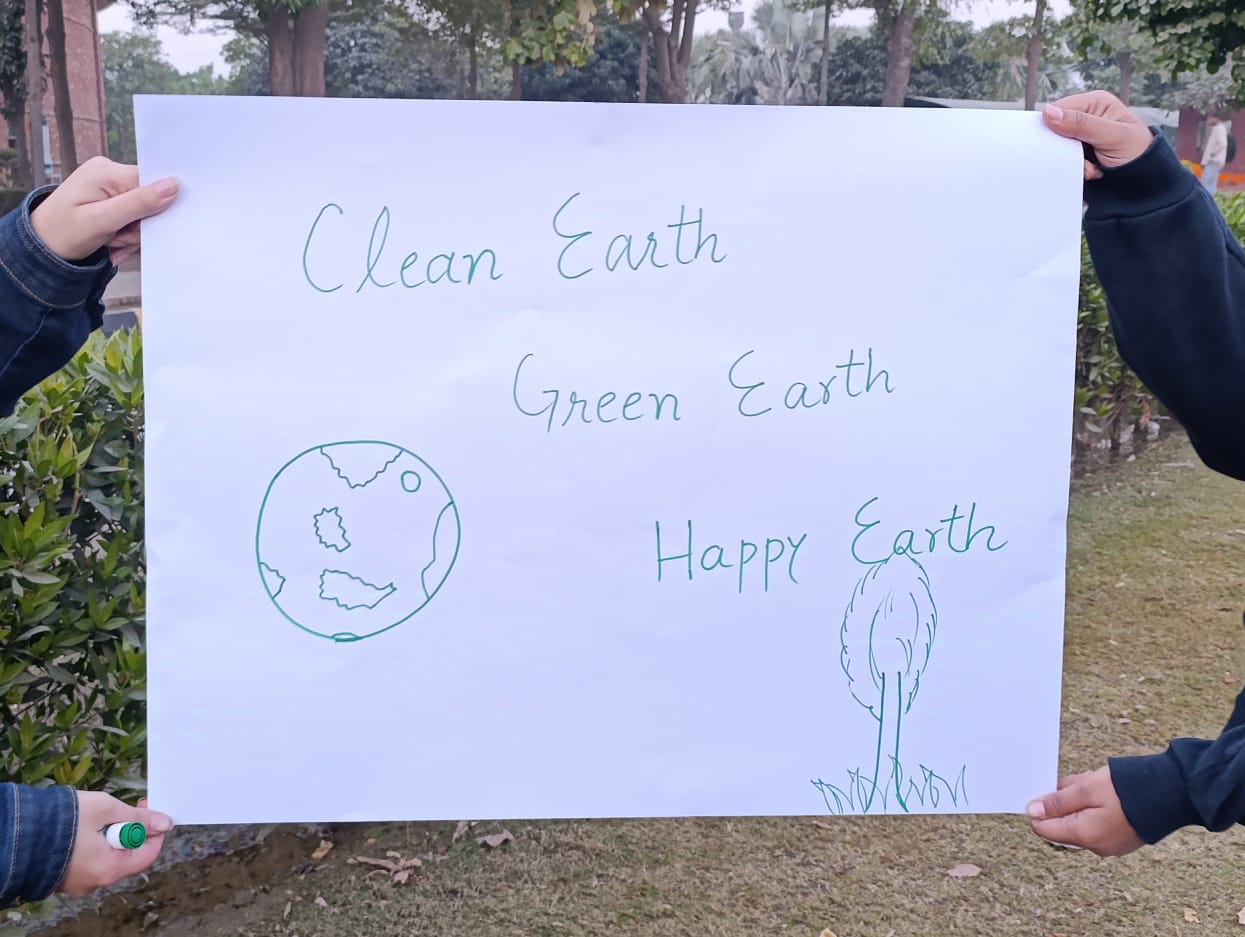 Clean Earth
Green Earth
Happy Earth